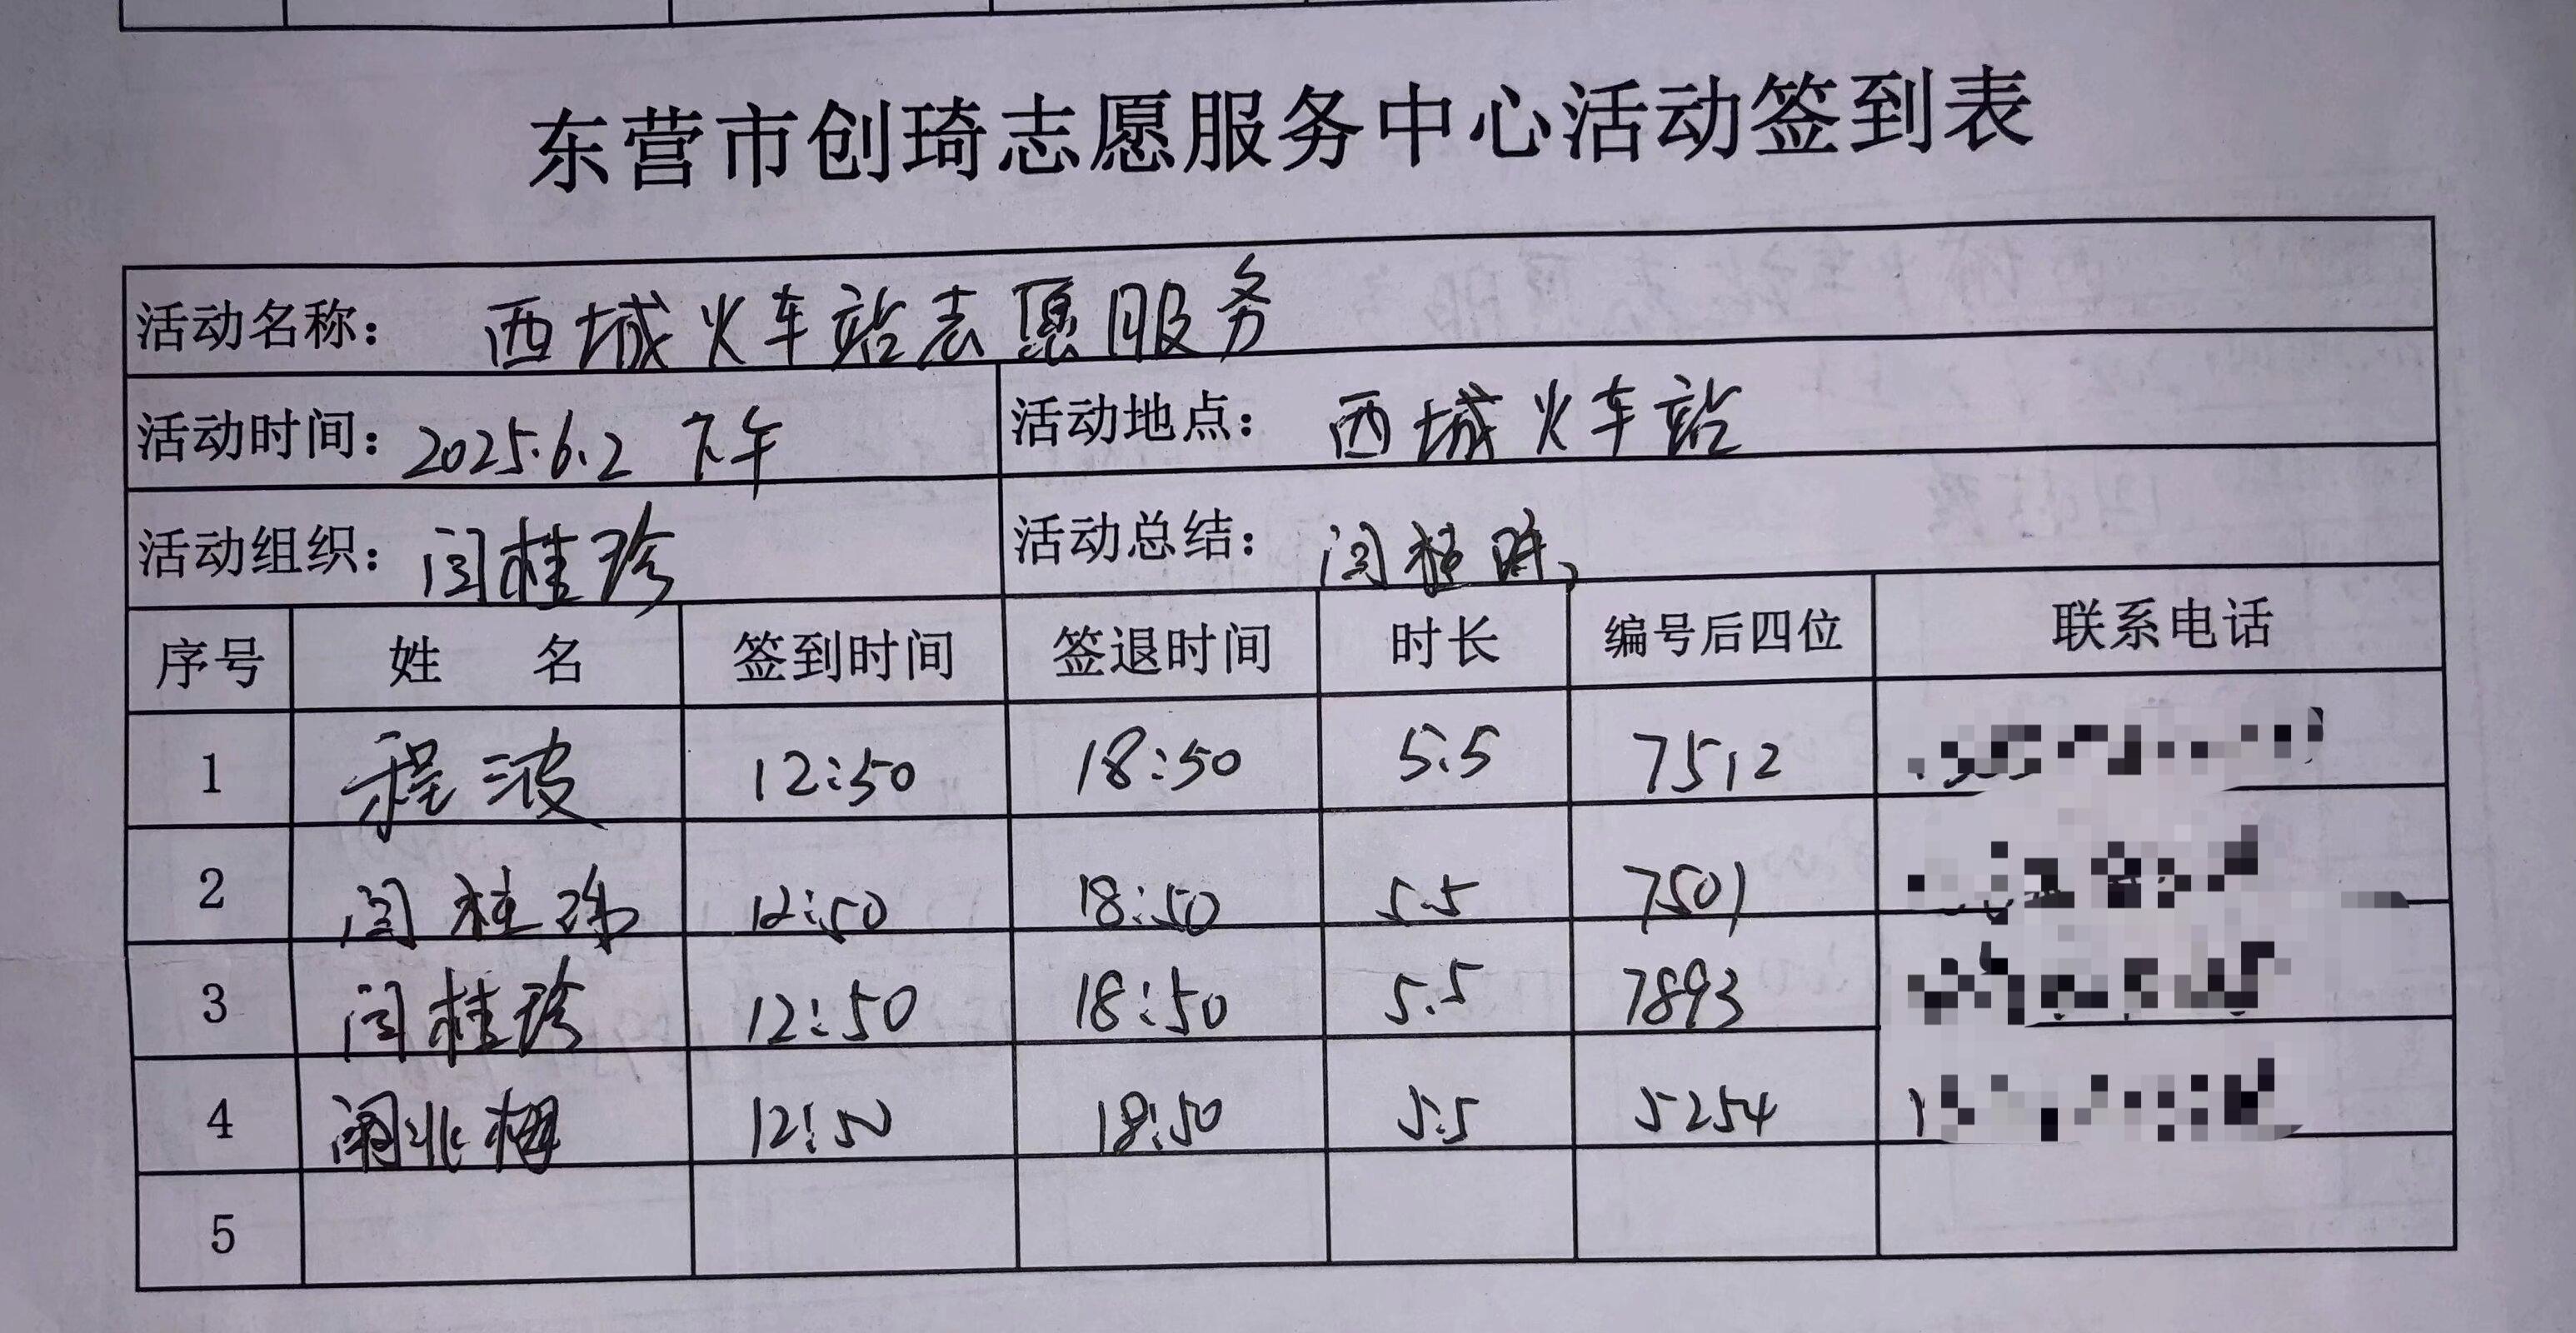 东营市创琦志愿服务中心活动签到表
活动名称： 西城火车站志愿服务
活动时间：2025.6.2 下午 活动地点： 西城火车站
活动组织：闫桂珍 活动总结： 闫桂
序号 姓 名 签到时间 签退时间 时长 编号后四位 联系电话
1 程波 12:50 18:50 5.5 7512
2 闫桂 12:50 18:50 5.5 7501
3 闫桂珍 12:50 18:50 5.5 7893
4 梅 12:50 18:50 5.5 5254
5